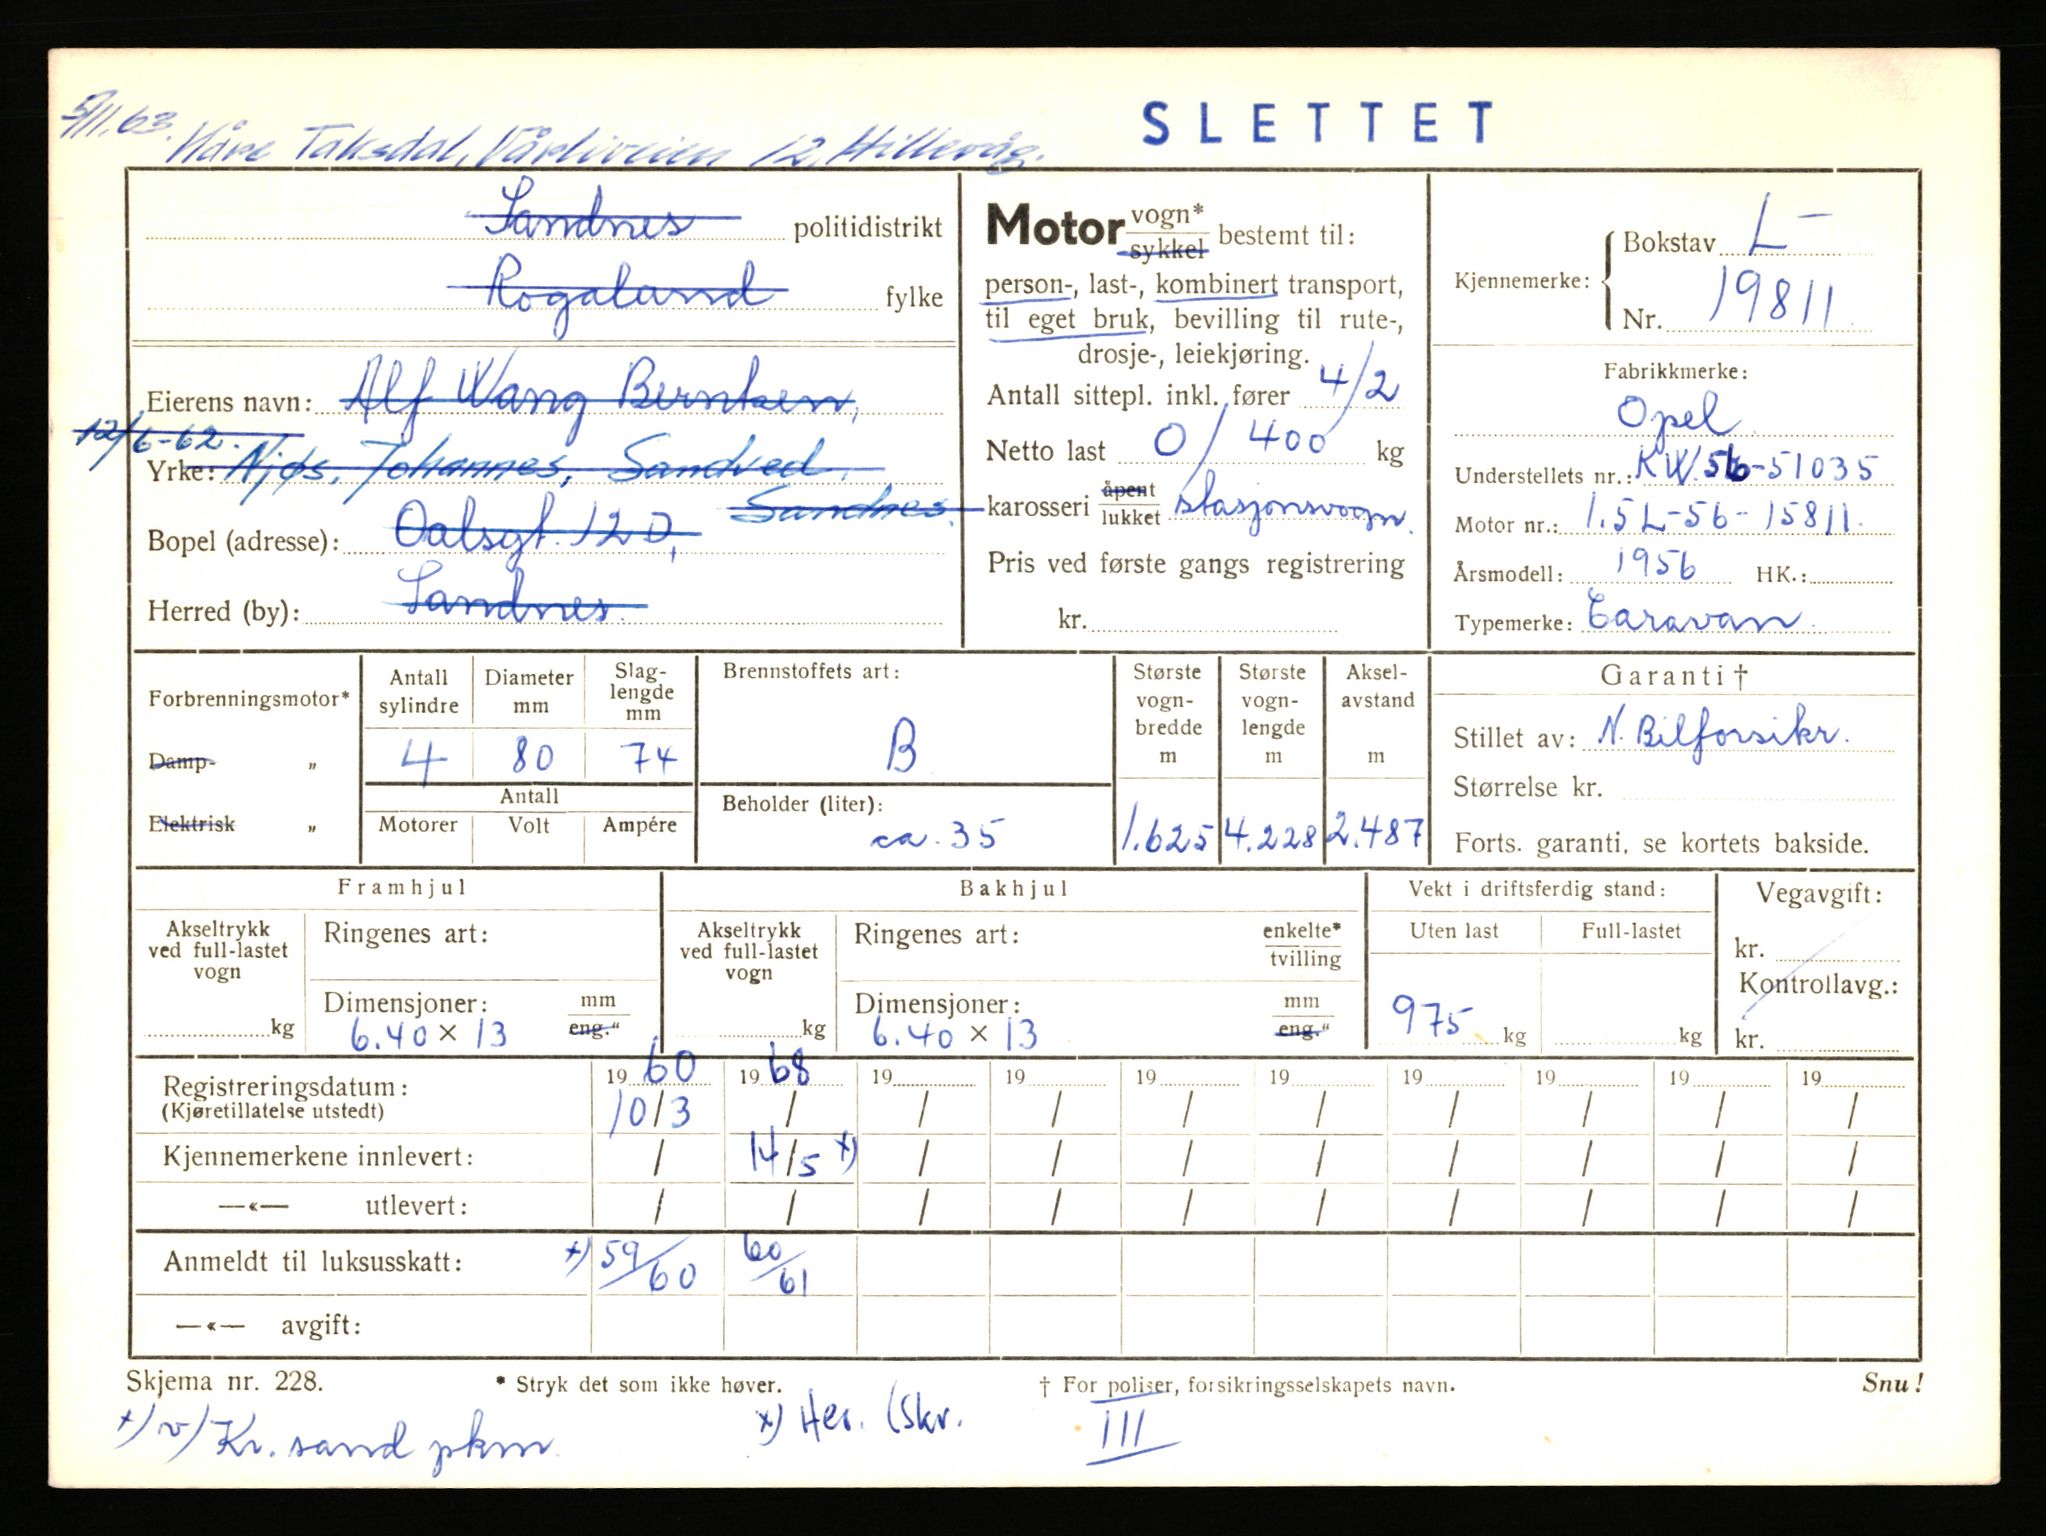 SLETTET
5/11.63. Kåre Taksdal, Vårliveien 12, Hillevåg.
Sandnes politidistrikt
Rogaland fylke
Eierens navn: Alf Wang Berntsen,
12/6-62.
Yrke: Njøs, Johannes, Sandved,
Sandnes.
Bopel (adresse): Oalsgt. 12 D,
Herred (by): Sandnes.
Motor vogn* / sykkel bestemt til:
person-, last-, kombinert transport,
til eget bruk, bevilling til rute-,
drosje-, leiekjøring.
Antall sittepl. inkl. fører 4/2
Netto last 0/400 kg
karosseri åpent / lukket stasjonsvogn.
Pris ved første gangs registrering
kr.
Kjennemerke: Bokstav L-
Nr. 19811
Fabrikkmerke:
Opel
Understellets nr.: KW.56-51035
Motor nr.: 1.5L-56-15811.
Årsmodell: 1956 HK.:
Typemerke: Caravan.
Forbrenningsmotor*
Damp- „
Elektrisk „
Antall sylindre Diameter mm Slag-lengde mm
4 80 74
Antall
Motorer Volt Ampére
Brennstoffets art:
B
Beholder (liter):
ca. 35
Største vogn-bredde m
1.625
Største vogn-lengde m
4.228
Aksel-avstand m
2.487
Garanti †
Stillet av: N. Bilforsikr.
Størrelse kr.
Forts. garanti, se kortets bakside.
Framhjul
Akseltrykk ved full-lastet vogn
kg
Ringenes art:
Dimensjoner: mm / eng."
6.40 × 13
Bakhjul
Akseltrykk ved full-lastet vogn
kg
Ringenes art: enkelte* / tvilling
Dimensjoner: mm / eng."
6.40 × 13
Vekt i driftsferdig stand:
Uten last Full-lastet
975 kg kg
Vegavgift:
kr.
Kontrollavg.:
kr.
Registreringsdatum: 19 60 19 68 19 19 19 19 19 19 19 19
(Kjøretillatelse utstedt) 10/3 / / / / / / / / /
Kjennemerkene innlevert: / 14/5 x) / / / / / / / /
—«— utlevert: / / / / / / / / / /
Anmeldt til luksusskatt: +) 59/60 60/61
—«— avgift:
Skjema nr. 228. * Stryk det som ikke høver. † For poliser, forsikringsselskapets navn. Snu!
+) v) Kr. sand pkm. x) Her. (Skr. III